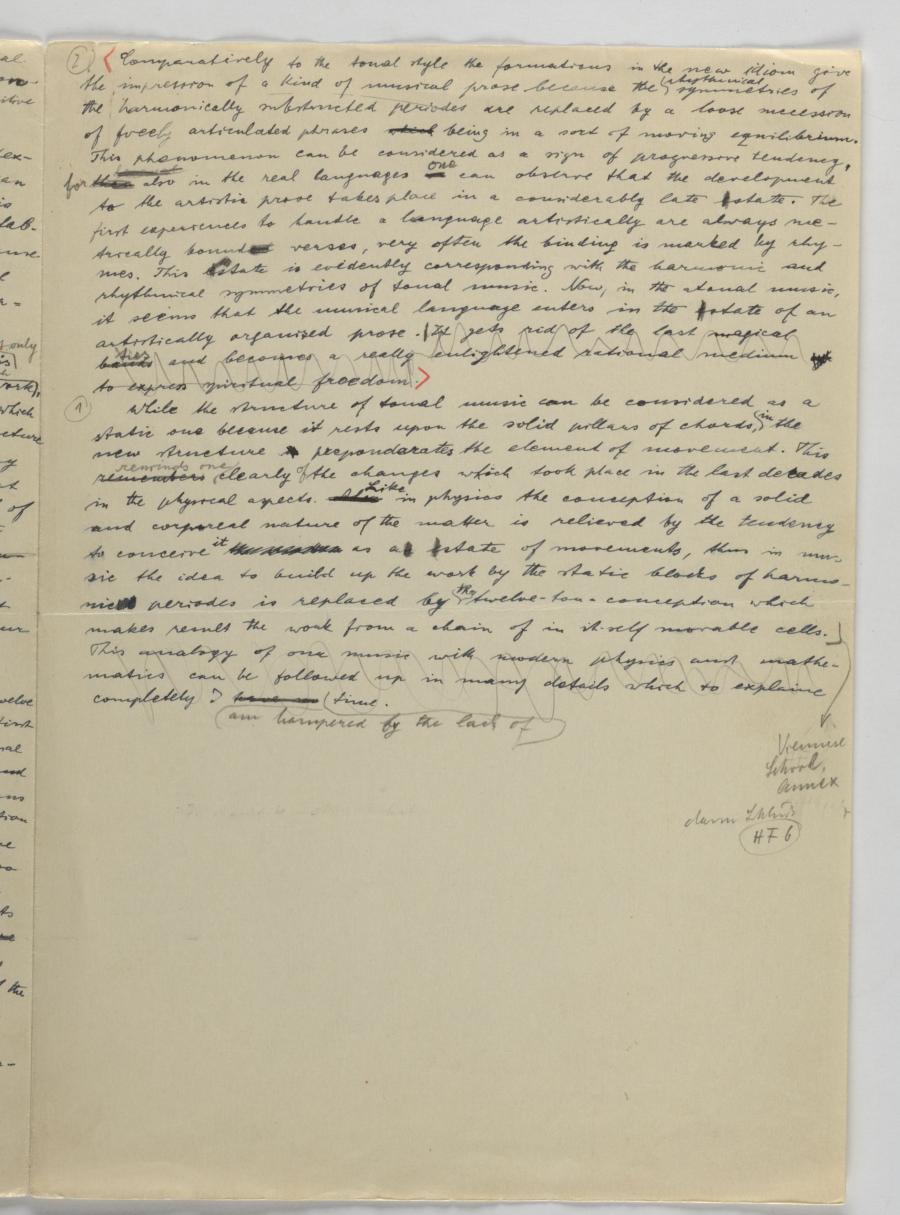 ② < Comparatively to the tonal style the formations in the new idiom give
the impression of a kind of musical prose because the rhythmical symmetries of
the harmonically substructed periodes are replaced by a loose succession
of freely articulated phrases being in a sort of moving equilibrium.
This phenomenon can be considered as a sign of progressive tendency,
for also in the real languages one can observe that the development
to the artistic prose takes place in a considerably late state. The
first experiences to handle a language artistically are always me-
trically bound verses, very often the binding is marked by rhy-
mes. This state is evidently corresponding with the harmonic and
rhythmical symmetries of tonal music. Now, in the atonal music,
it seems that the musical language enters in the state of an
artistically organized prose. It gets rid of the last magical
bands ties and becomes a really enlightened rational medium
to express spiritual freedom. >
① While the structure of tonal music can be considered as a
static one because it rests upon the solid pillars of chords, in the
new structure prepondarates the element of movement. This
remembers reminds one clearly of the changes which took place in the last decades
in the physical aspects. Like in physics the conception of a solid
and corporeal nature of the matter is relieved by the tendency
to conceive it as a state of movements, thus in mu-
sic the idea to build up the work by the static blocks of harmo-
nic periodes is replaced by the twelve-ton-conception which
makes result the work from a chain of in itself movable cells.
This analogy of our music with modern physics and mathe-
matics can be followed up in many details which to explaine
completely I have no time.
am hampered by the lack of
Viennese
School,
Annex
dann
HF 6